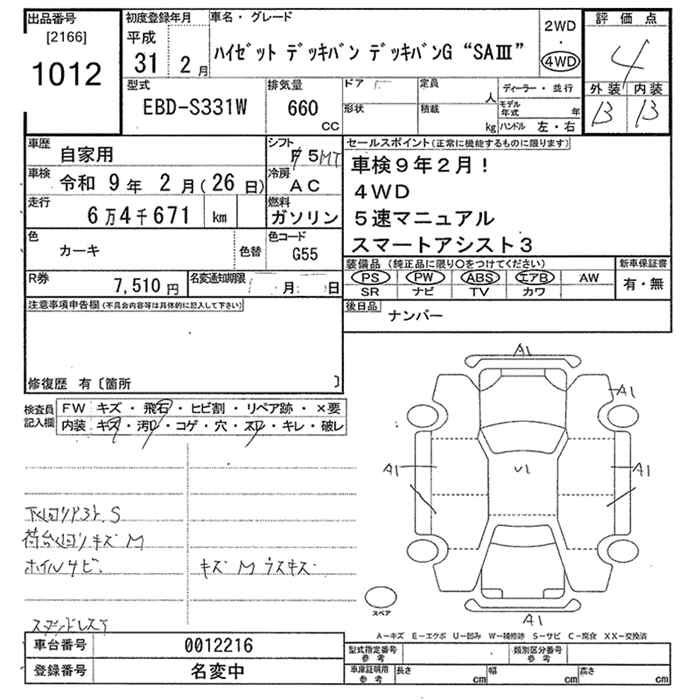 出品番号
[2166]
1012
初度登録年月
平成
31 2月
車名・グレード
ハイゼット デッキバン デッキバンG “SAⅢ”
2WD
・
4WD
評価点
4
外装 内装
B B
型式
EBD-S331W
排気量
660
cc
ドア
形状
定員
人
積載
kg
ディーラー・並行
モデル年式 年
ハンドル 左・右
車歴
自家用
シフト
F5MT
車検
令和 9年 2月(26日)
冷房
AC
走行
6万4千671 km
燃料
ガソリン
色
カーキ
色替
色コード
G55
R券
7,510円
名変通知期限
月 日
セールスポイント(正常に機能するものに限ります)
車検9年2月!
4WD
5速マニュアル
スマートアシスト3
装備品(純正品に限り○をつけてください)
PS PW ABS エアB AW
SR ナビ TV カワ
新車保証書
有・無
後日品
ナンバー
注意事項申告欄(不具合内容等は具体的に記入して下さい)
修復歴 有〔箇所 〕
検査員
記入欄
FW キズ・飛石・ヒビ割・リペア跡・×要
内装 キズ・汚れ・コゲ・穴・スレ・キレ・破レ
A1
A1
A1
U1
A1
A1
スペア
下回りサビ S
荷台回りキズ M
ホイルサビ
キズ M ウスキズ
A-キズ E-エクボ U-凹み W-補修跡 S-サビ C-腐食 XX-交換済
車台番号
0012216
登録番号
名変中
型式指定番号
参考
類別区分番号
参考
車庫証明用
参考
長さ cm
幅 cm
高さ cm